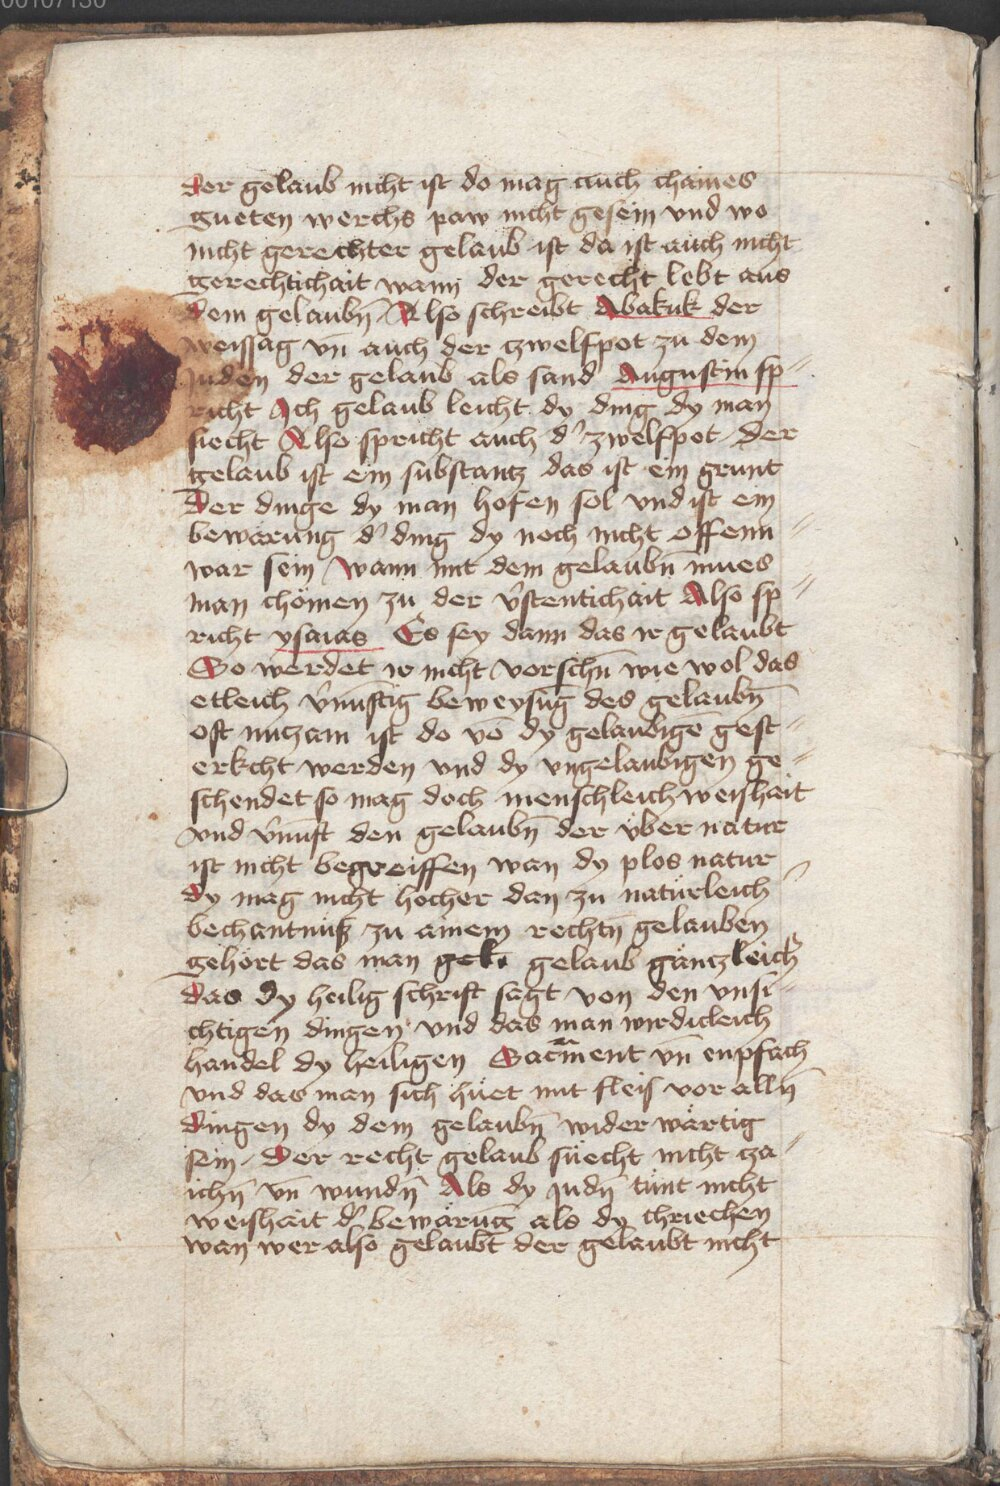 00107130
der gelaub nicht ist do mag auch chaines
gueten werchs paw nicht gesein vnd wo
nicht gerechter gelaub ist da ist auch nicht
gerechtichait wann der gerecht lebt aus
dem gelaubn̄ Also schreibt Abakuk der
weissag vn̄ auch der zwelfpot zu dem
juden der gelaub als sand Augustin sp⸗
richt Ich gelaub leicht dy ding dy man
siecht Also spricht auch d' zwelfpot der
gelaub ist ein substantz das ist ein grunt
Der dinge dy man hofen sol vnd ist ein
bewärung d' ding dy noch nicht offenn⸗
war sein wann mit dem gelaubn̄ mues
man chömen zu der v'stentichait Also sp⸗
richt ysaias Es sey dann das ir gelaubt
So werdet ir nicht vorschn̄ wie wol das
etleich v'nūftig beweysūg des gelaubn̄
oft nuczam ist do vō dy gelaubigē gest⸗
erkcht werden vnd dy vngelaubigen ge⸗
schendet so mag doch menschleich weishait
vnd v'nūft den gelaubn̄ der über natur
ist nicht begreiffen wan dy plos natur
dy mag nicht hocher dan zu natürleich
bechantnüß zu ainem rechtn̄ gelauben
gehört das man gelaub gäntzleich
das dy heilig schrift sagt von den vnsi⸗
chtigen dingen vnd das man wirdicleich
handel dy heiligen Sacm̄ent vn̄ enpfach
vnd das man sich hüet mit fleis vor alln̄
dingen dy dem gelaubn̄ wider wärtig
sein Der recht gelaub süecht nicht cza⸗
ichn̄ vn̄ wundn̄ Als dy Judn̄ tunt nicht
weishait d' bewärūg als dy chriechen
wan wer also gelaubt der gelaubt nicht